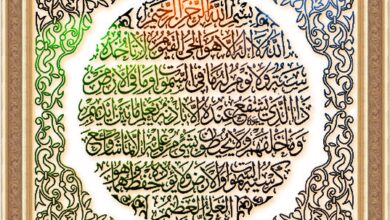 بسم الله الرحمن الرحيم
الله لا إله إلا هو الحي القيوم لا تأخذه
سنة ولا نوم له ما في السموات وما في الأرض من
ذا الذي يشفع عنده إلا بإذنه يعلم ما بين أيديهم
وما خلفهم ولا يحيطون بشيء من علمه إلا بما شاء وسع
كرسيه السموات والأرض ولا يؤده حفظهما وهو
العلي العظيم